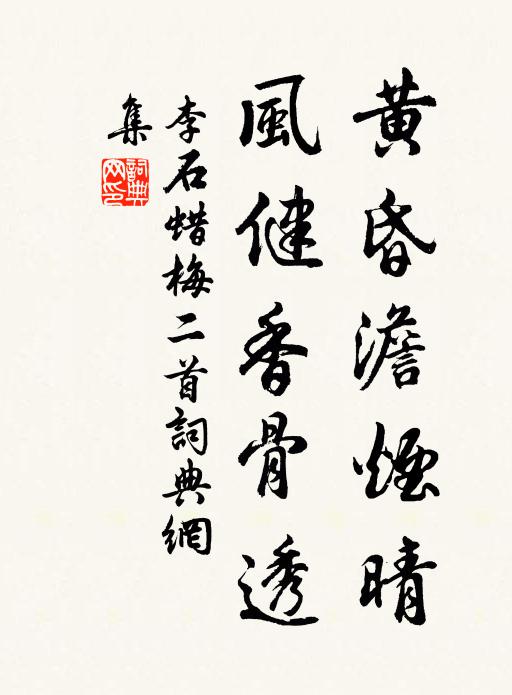 黃昏澹煙晴
風健香骨透
李石蜡梅二首詞典網
集
詞典網印